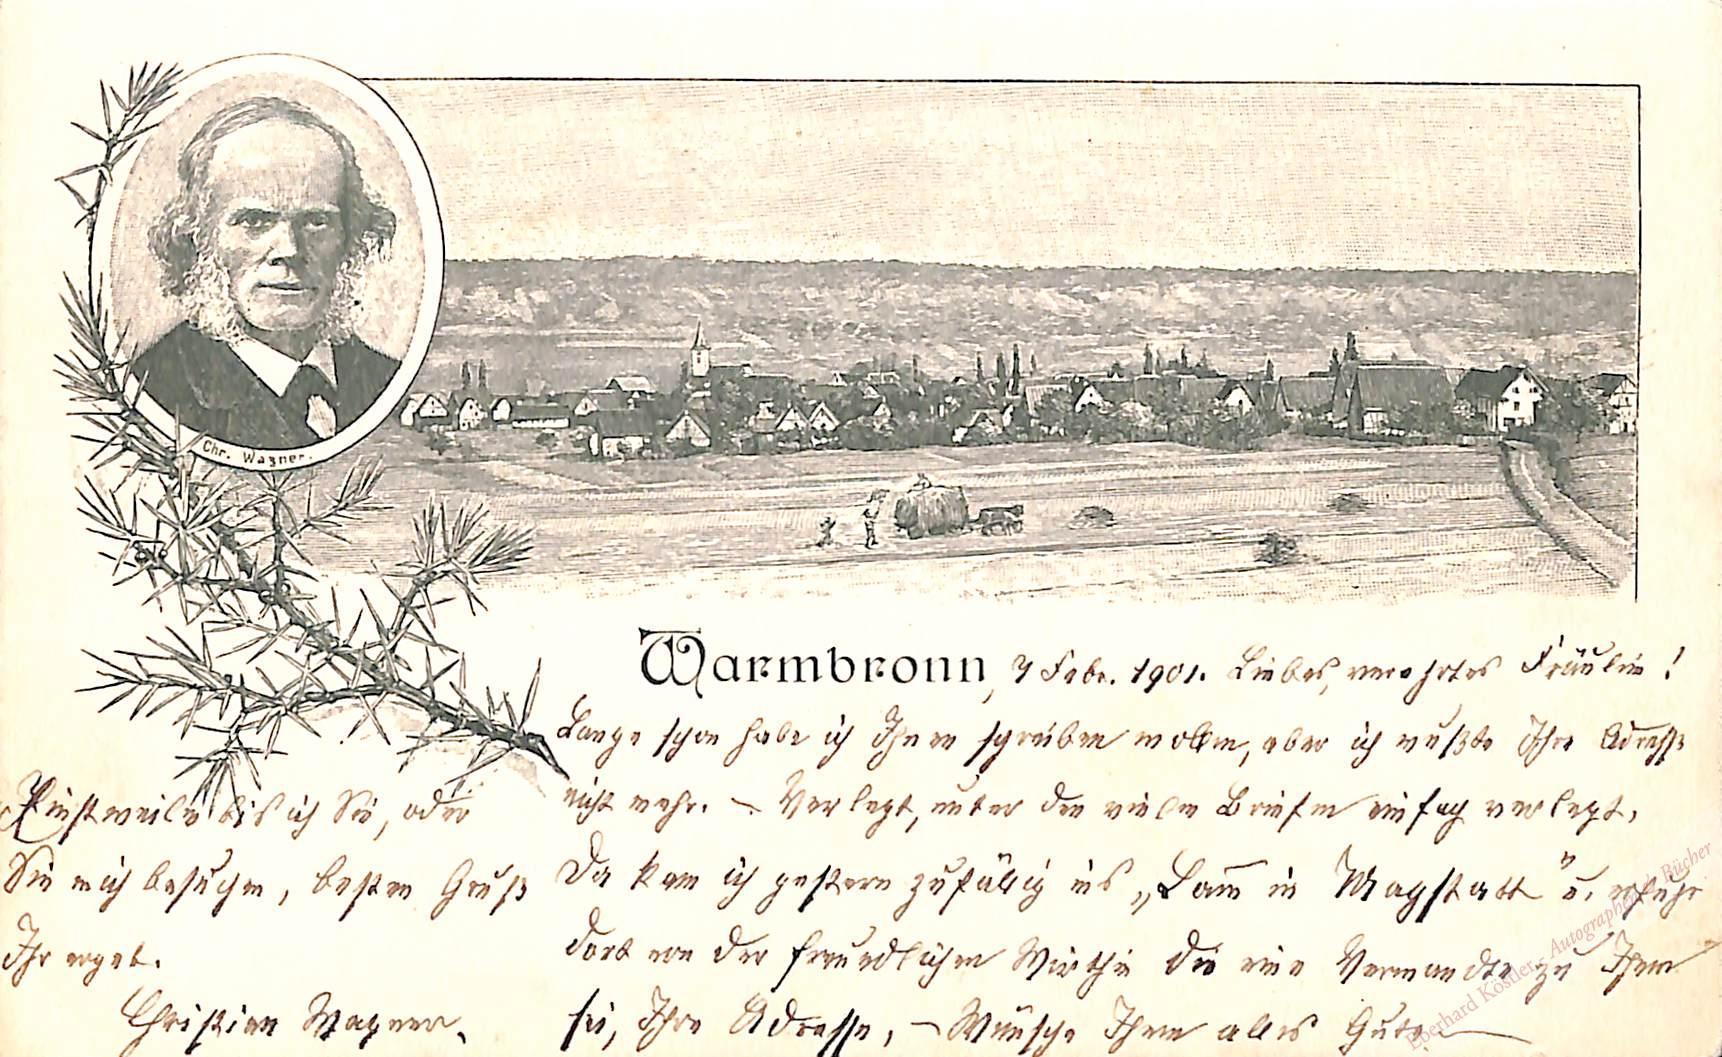 Chr. Wagner.
Warmbronn, 7 Febr. 1901. Liebes, verehrtes Fräulein!
Lange schon habe ich Ihnen schreiben wollen, aber ich wußte Ihre Adresse
nicht mehr. – Verlegt, unter den vielen Briefen einfach verlegt.
Da kam ich gestern zufällig ins „Lam̄ in Magstatt" u. erfuhr
dort von der freundlichen Wirthin die eine Verwandte zu Ihnen
sei, Ihre Adresse. – Wünsche Ihnen alles Gute
Einstweilen bis ich Sie, oder
Sie mich besuchen, besten Gruß
Ihr ergeb.
Christian Wagner.
Eberhard Köstler - Autographen & Bücher